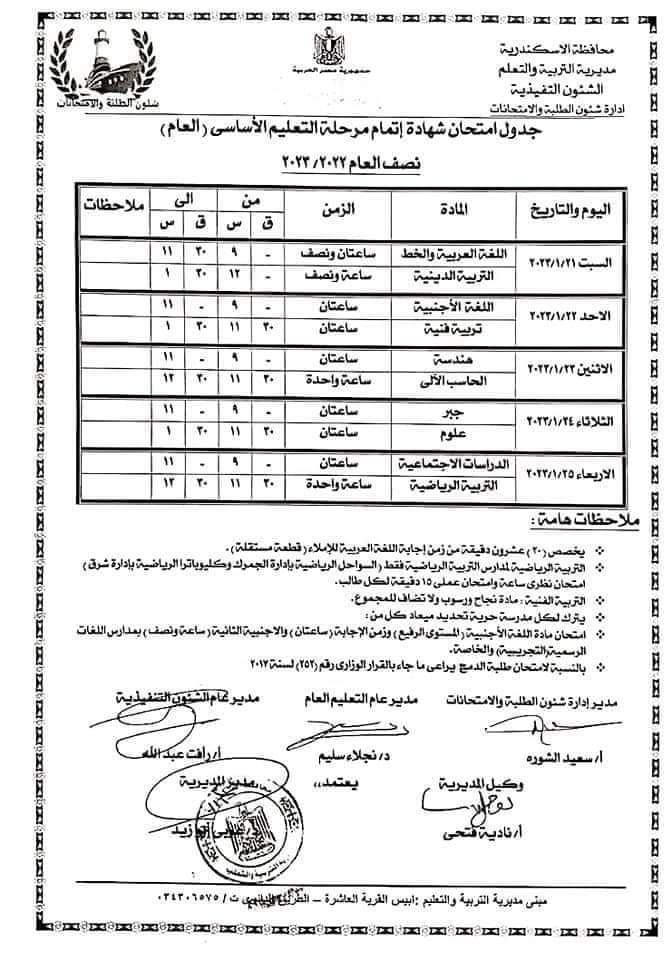 محافظة الاسكندرية
مديرية التربية والتعلم
الشئون التفيذية
ادارة شئون الطلبة والامتحانات
جمهورية مصر العربية
شئون الطلبة والامتحانات
جدول امتحان شهادة إتمام مرحلة التعليم الأساسى (العام)
نصف العام ٢٠٢٣/٢٠٢٢
اليوم والتاريخ المادة الزمن من الى ملاحظات
ق س ق س
السبت ٢٠٢٣/١/٢١ اللغة العربية والخط ساعتان ونصف - ٩ ٣٠ ١١
التربية الدينية ساعة ونصف - ١٢ ٣٠ ١
الاحد ٢٠٢٣/١/٢٢ اللغة الأجنبية ساعتان - ٩ - ١١
تربية فنية ساعتان ٣٠ ١١ ٣٠ ١
الاثنين ٢٠٢٣/١/٢٣ هندسة ساعتان - ٩ - ١١
الحاسب الآلى ساعة واحدة ٣٠ ١١ ٣٠ ١٢
الثلاثاء ٢٠٢٣/١/٢٤ جبر ساعتان - ٩ - ١١
علوم ساعتان ٣٠ ١١ ٣٠ ١
الاربعاء ٢٠٢٣/١/٢٥ الدراسات الاجتماعية ساعتان - ٩ - ١١
التربية الرياضية ساعة واحدة ٣٠ ١١ ٣٠ ١٢
ملاحظات هامة :
❖ يخصص (٢٠) عشرون دقيقة من زمن إجابة اللغة العربية للإملاء (قطعة مستقلة) .
❖ التربية الرياضية لمدارس التربية الرياضية فقط (السواحل الرياضية بإدارة الجمرك وكليوباترا الرياضية بإدارة شرق )
امتحان نظرى ساعة وامتحان عملى ١٥ دقيقة لكل طالب.
❖ التربية الفنية : مادة نجاح ورسوب ولا تضاف للمجموع.
❖ يترك لكل مدرسة حرية تحديد ميعاد كل من :
❖ امتحان مادة اللغة الأجنبية (المستوى الرفيع) وزمن الإجابة (ساعتان) والاجنبية الثانية (ساعة ونصف) بمدارس اللغات
الرسمية(التجريبية) والخاصة.
❖ بالنسبة لامتحان طلبة الدمج يراعى ما جاء بالقرار الوزارى رقم (٢٥٢) لسنة ٢٠١٧
مدير إدارة شئون الطلبة والامتحانات مدير عام التعليم العام مدير عام الشئون التنفيذية
أ/ سعيد الشوره د/ نجلاء سليم أ/ رأفت عبد الله
وكيل المديرية يعتمد،، مدير المديرية
أ/ نادية فتحى د/ عربى أبو زيد
مبنى مديرية التربية والتعليم : أبيس القرية العاشرة – الطريق ت / ٠٣٤٣٠٦٥٧٥